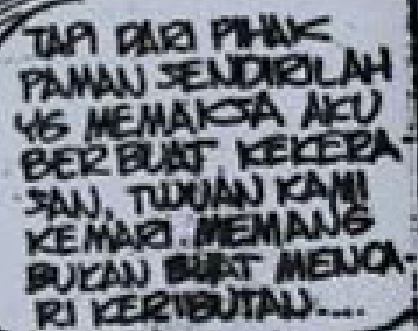 TAPI DARI PIHAK
PAMAN SENDIRILAH
YG MEMAKSA AKU
BERBUAT KEKERA-
SAN, TUJUAN KAMI
KEMARI. MEMANG
BUKAN BUAT MENCA-
RI KERIBUTAN....